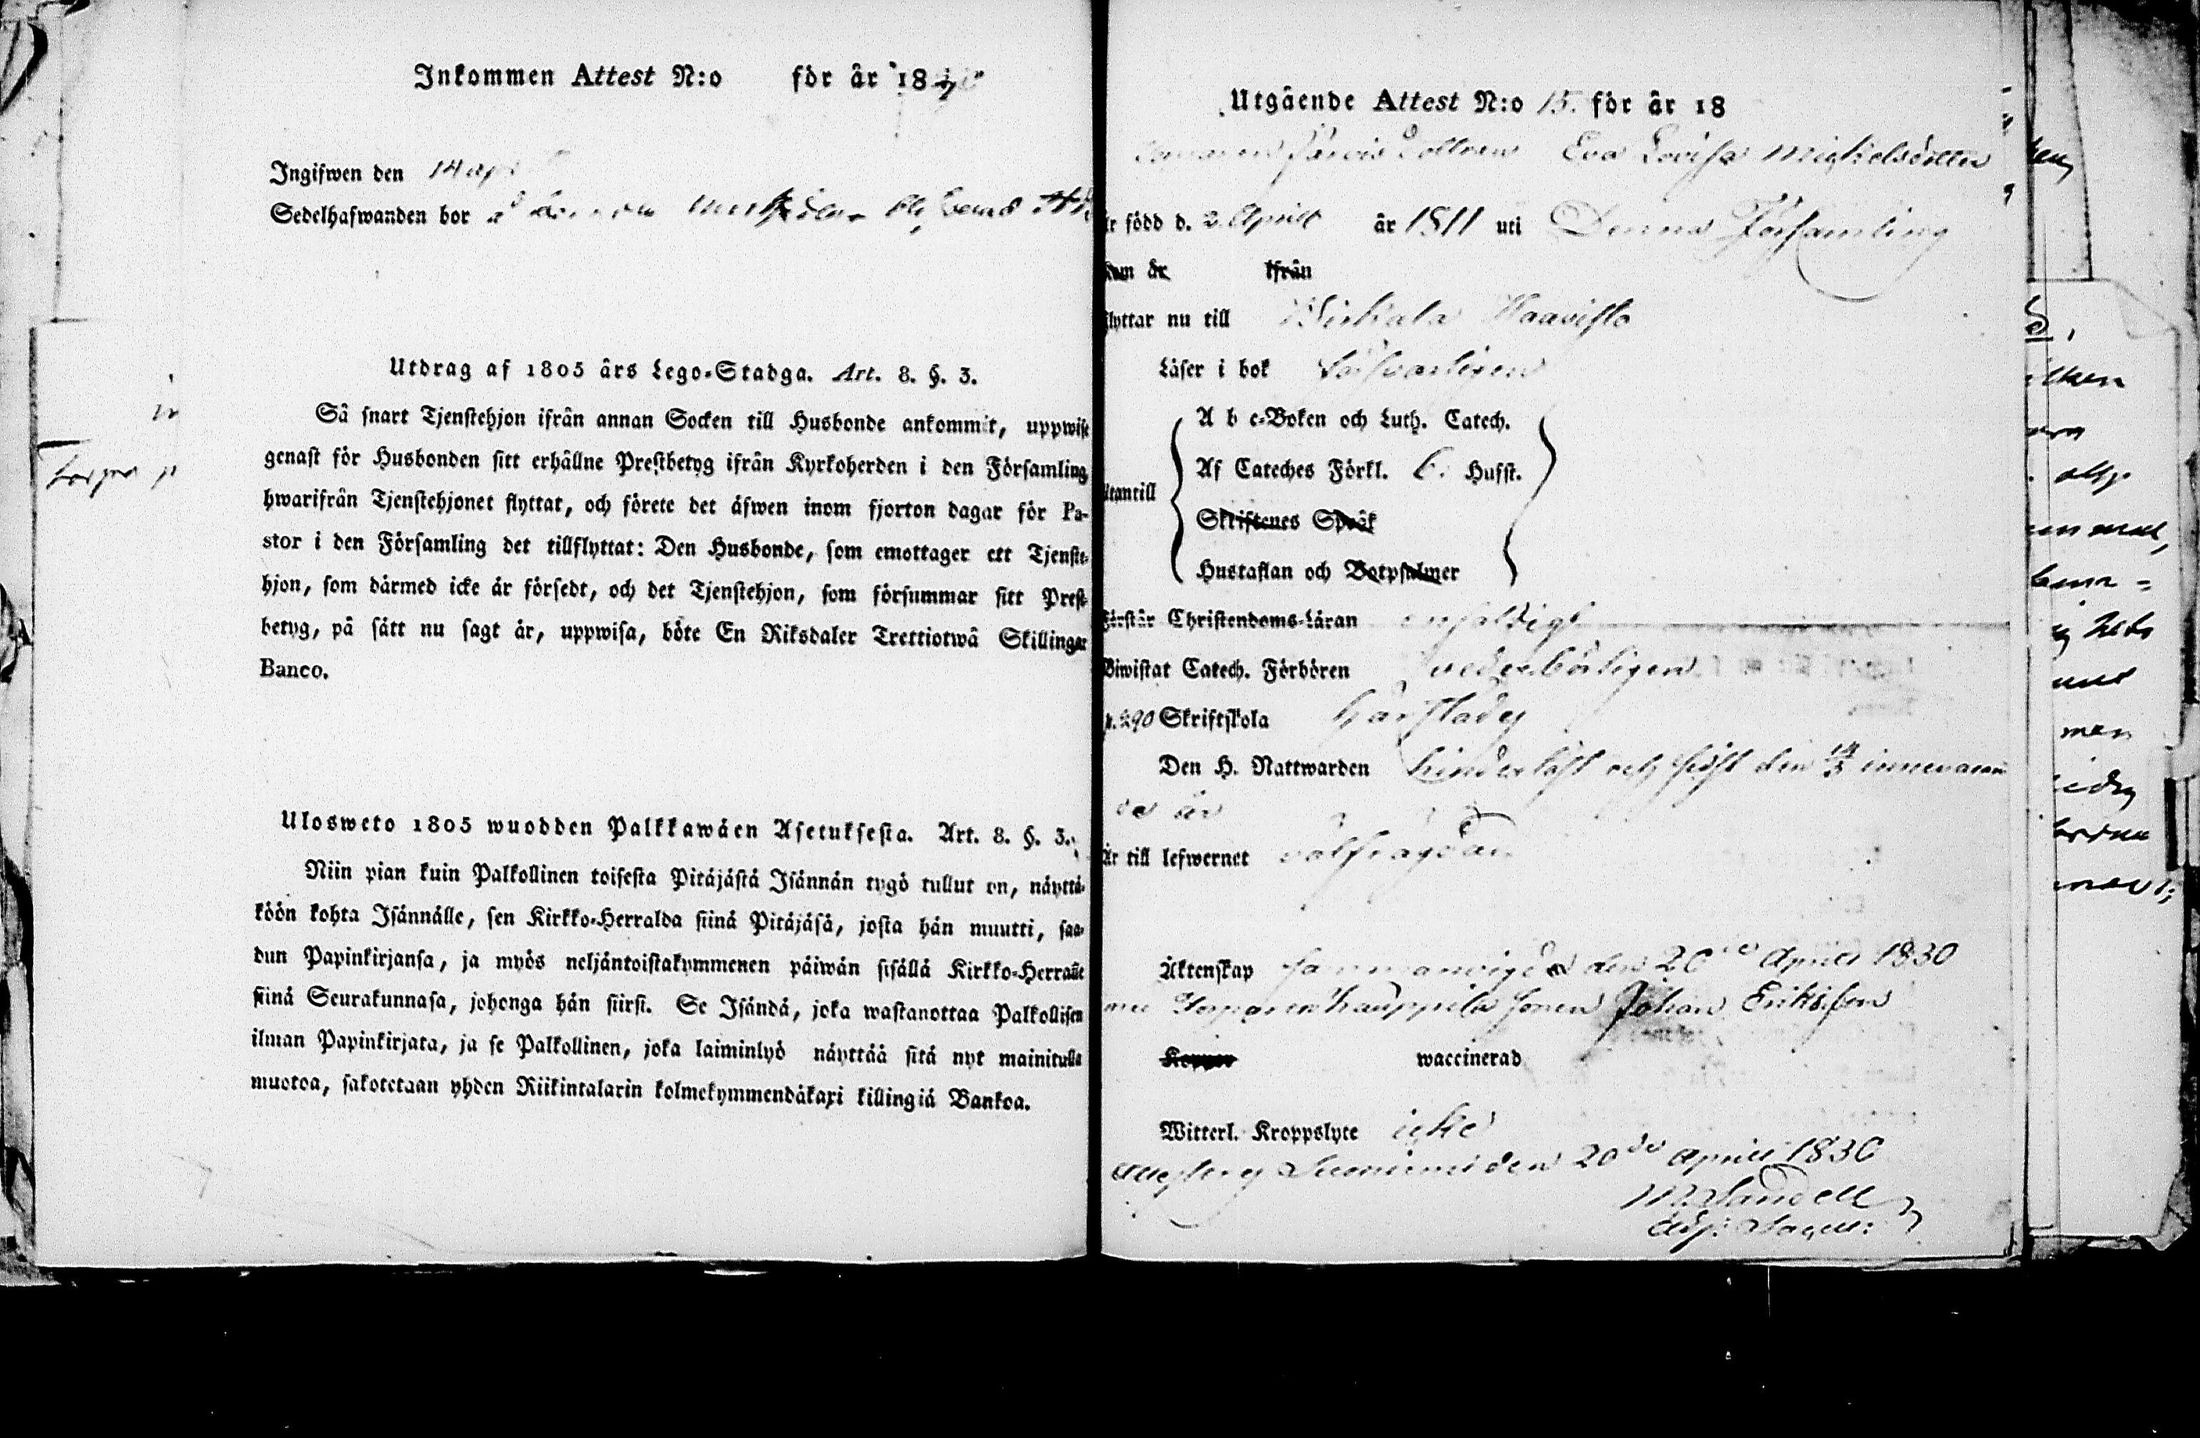 Inkommen Attest N:o för år 18
Ingifwen den 14
Sedelhafwanden bor
Utdrag af 1805 års Lego-Stadga. Art. 8. §. 3.
Så snart Tjenstehjon ifrån annan Socken till Husbonde ankommit, uppwise
genast för Husbonden sitt erhållne Prestbetyg ifrån Kyrkoherden i den Församling
hwarifrån Tjenstehjonet flyttat, och förete det äfwen inom fjorton dagar för Pa-
stor i den Församling det tillflyttat: Den Husbonde, som emottager ett Tjenste-
hjon, som därmed icke är försedt, och det Tjenstehjon, som försummar sitt Prest-
betyg, på sätt nu sagt är, uppwisa, böte En Riksdaler Trettiotwå Skillingar
Banco.
Ulosweto 1805 wuodden Palkkawäen Asetuksesta. Art. 8. §. 3.
Niin pian kuin Palkollinen toisesta Pitäjästä Isännän tygö tullut on, näyttä-
köön kohta Isännälle, sen Kirkko-Herralda siinä Pitäjäsä, josta hän muutti, saa-
dun Papinkirjansa, ja myös neljäntoistakymmenen päiwän sisällä Kirkko-Herralle
siinä Seurakunnasa, johonga hän siirsi. Se Isändä, joka wastanottaa Palkollisen
ilman Papinkirjata, ja se Palkollinen, joka laiminlyö näyttää sitä nyt mainitulla
muotoa, sakotetaan yhden Riikintalarin kolmekymmendäkaxi killingiä Bankoa.
Utgående Attest N:o 15. för år 18
Järvis Dottren Eva Lovisa Michelsdotter
är född d. 2 Aprill år 1811 uti Denna Församling
Kom år ifrån
flyttar nu till Birkala Haavisto
Läser i bok försvarligen
A b c-Boken och Luth. Catech.
Af Cateches Förkl. 6. Husst.
Utantill
Skriftenes Språk
Hustaflan och Botpsalmer
Förstår Christendoms-Läran enfaldigt
Biwistat Catech. Förhören vederbörligen
Skriftskola härstädes
Den H. Nattwarden hinderlöst och sist den 14/3 innevaran
de år
Är till lefwernet välfrägdad
Äktenskap sammanvigd den 20de April 1830
med Kauppila sonen Johan Eriksson
Koppor waccinerad
Witterl. Kroppslyte icke
Attesterar Suoniemi den 20de April 1830
M. Sandell
Adj: Sacell: